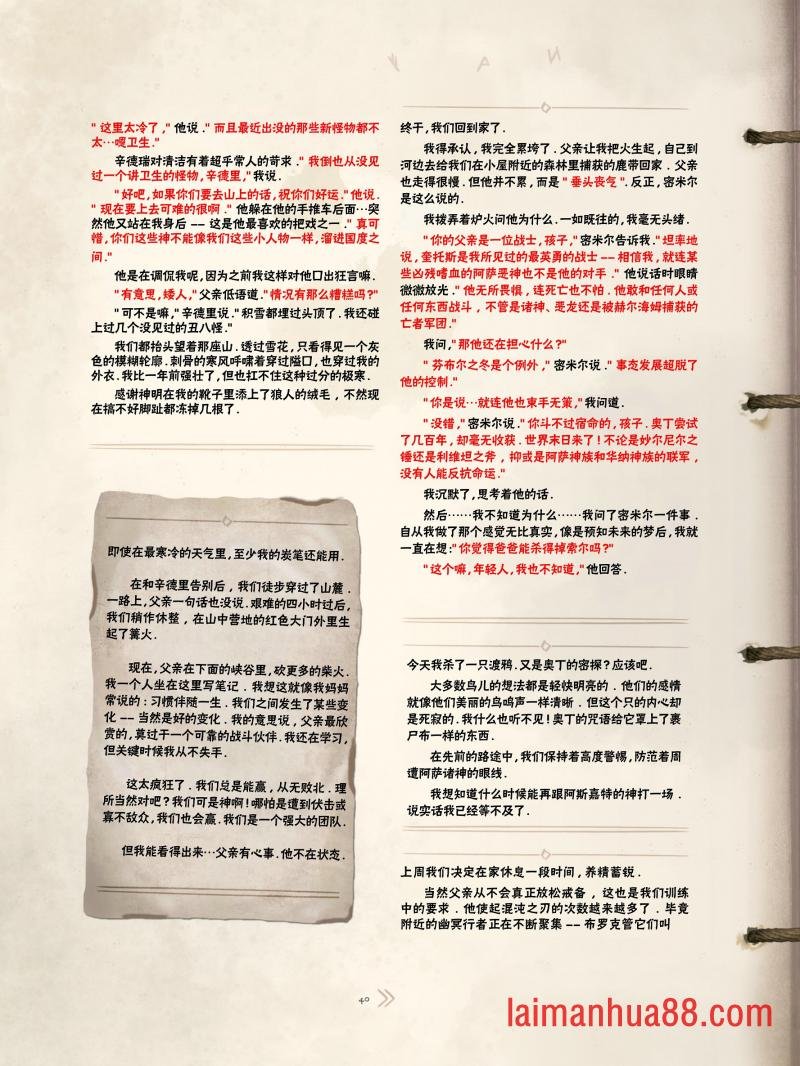 "这里太冷了,"他说."而且最近出没的那些新怪物都不
太…嗯卫生."
辛德瑞对清洁有着超乎常人的苛求."我倒也从没见
过一个讲卫生的怪物,辛德里,"我说.
"好吧,如果你们要去山上的话,祝你们好运."他说.
"现在要上去可难的很啊."他躲在他的手推车后面…突
然他又站在我身后 -- 这是他最喜欢的把戏之一."真可
惜,你们这些神不能像我们这些小人物一样,溜进国度之
间."
他是在调侃我呢,因为之前我这样对他口出狂言嘛.
"有意思,矮人,"父亲低语道."情况有那么糟糕吗?"
"可不是嘛,"辛德里说."积雪都埋过头顶了.我还碰
上过几个没见过的丑八怪."
我们都抬头望着那座山.透过雪花,只看得见一个灰
色的模糊轮廓.刺骨的寒风呼啸着穿过隘口,也穿过我的
外衣.我比一年前强壮了,但也扛不住这种过分的极寒.
感谢神明在我的靴子里添上了狼人的绒毛,不然现
在搞不好脚趾都冻掉几根了.
即使在最寒冷的天气里,至少我的炭笔还能用.
在和辛德里告别后,我们徒步穿过了山麓.
一路上,父亲一句话也没说.艰难的四小时过后,
我们稍作休整,在山中营地的红色大门外里生
起了篝火.
现在,父亲在下面的峡谷里,砍更多的柴火.
我一个人坐在这里写笔记.我想这就像我妈妈
常说的:习惯伴随一生.我们之间发生了某些变
化 -- 当然是好的变化.我的意思说,父亲最欣
赏的,莫过于一个可靠的战斗伙伴.我还在学习,
但关键时候我从不失手.
这太疯狂了.我们总是能赢,从无败北.理
所当然对吧?我们可是神啊!哪怕是遭到伏击或
寡不敌众,我们也会赢.我们是一个强大的团队.
但我能看得出来…父亲有心事.他不在状态.
终于,我们回到家了.
我得承认,我完全累垮了.父亲让我把火生起,自己到
河边去给我们在小屋附近的森林里捕获的鹿带回家.父亲
也走得很慢.但他并不累,而是"垂头丧气".反正,密米尔
是这么说的.
我拨弄着炉火问他为什么.一如既往的,我毫无头绪.
"你的父亲是一位战士,孩子,"密米尔告诉我."坦率地
说,奎托斯是我所见过的最英勇的战士 -- 相信我,就连某
些凶残嗜血的阿萨恶神也不是他的对手."他说话时眼睛
微微放光."他无所畏惧,连死亡也不怕.他敢和任何人或
任何东西战斗,不管是诸神、恶龙还是被赫尔海姆捕获的
亡者军团."
我问,"那他还在担心什么?"
"芬布尔之冬是个例外,"密米尔说."事态发展超脱了
他的控制."
"你是说…就连他也束手无策,"我问道.
"没错,"密米尔说."你斗不过宿命的,孩子.奥丁尝试
了几百年,却毫无收获.世界末日来了!不论是妙尔尼尔之
锤还是利维坦之斧,抑或是阿萨神族和华纳神族的联军,
没有人能反抗命运."
我沉默了,思考着他的话.
然后……我不知道为什么……我问了密米尔一件事.
自从我做了那个感觉无比真实,像是预知未来的梦后,我就
一直在想:"你觉得爸爸能杀得掉索尔吗?"
"这个嘛,年轻人,我也不知道,"他回答.
今天我杀了一只渡鸦.又是奥丁的密探?应该吧.
大多数鸟儿的想法都是轻快明亮的.他们的感情
就像他们美丽的鸟鸣声一样清晰.但这个只的内心却
是死寂的.我什么也听不见!奥丁的咒语给它罩上了裹
尸布一样的东西.
在先前的路途中,我们保持着高度警惕,防范着周
遭阿萨诸神的眼线.
我想知道什么时候能再跟阿斯嘉特的神打一场.
说实话我已经等不及了.
上周我们决定在家休息一段时间,养精蓄锐.
当然父亲从不会真正放松戒备,这也是我们训练
中的要求.他使起混沌之刃的次数越来越多了.毕竟
附近的幽冥行者正在不断聚集 -- 布罗克管它们叫
40
laimanhua88.com